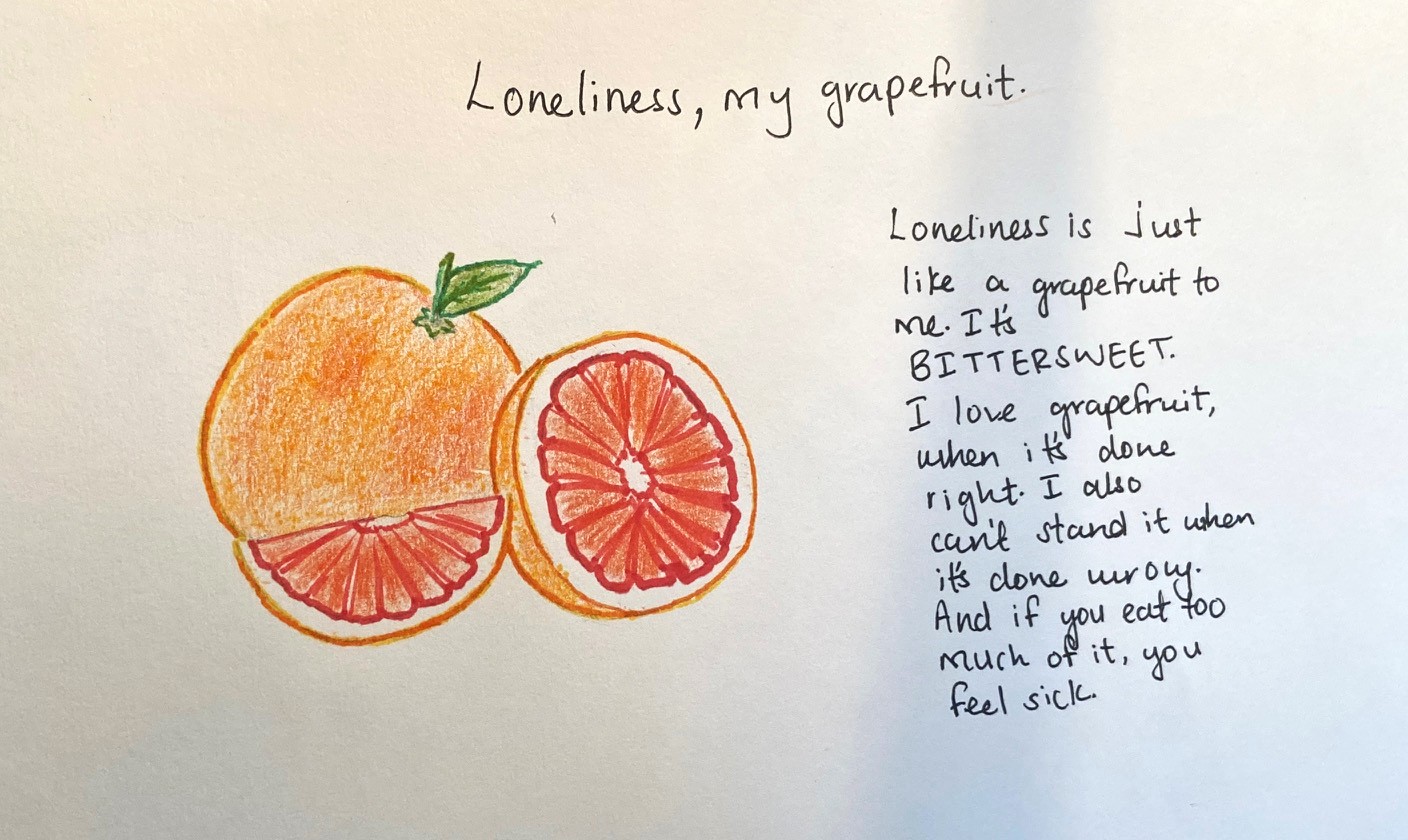 Loneliness, my grapefruit.
Loneliness is just
like a grapefruit to
me. It's
BITTERSWEET.
I love grapefruit,
when it's done
right. I also
can't stand it when
it's done wrong.
And if you eat too
much of it, you
feel sick.